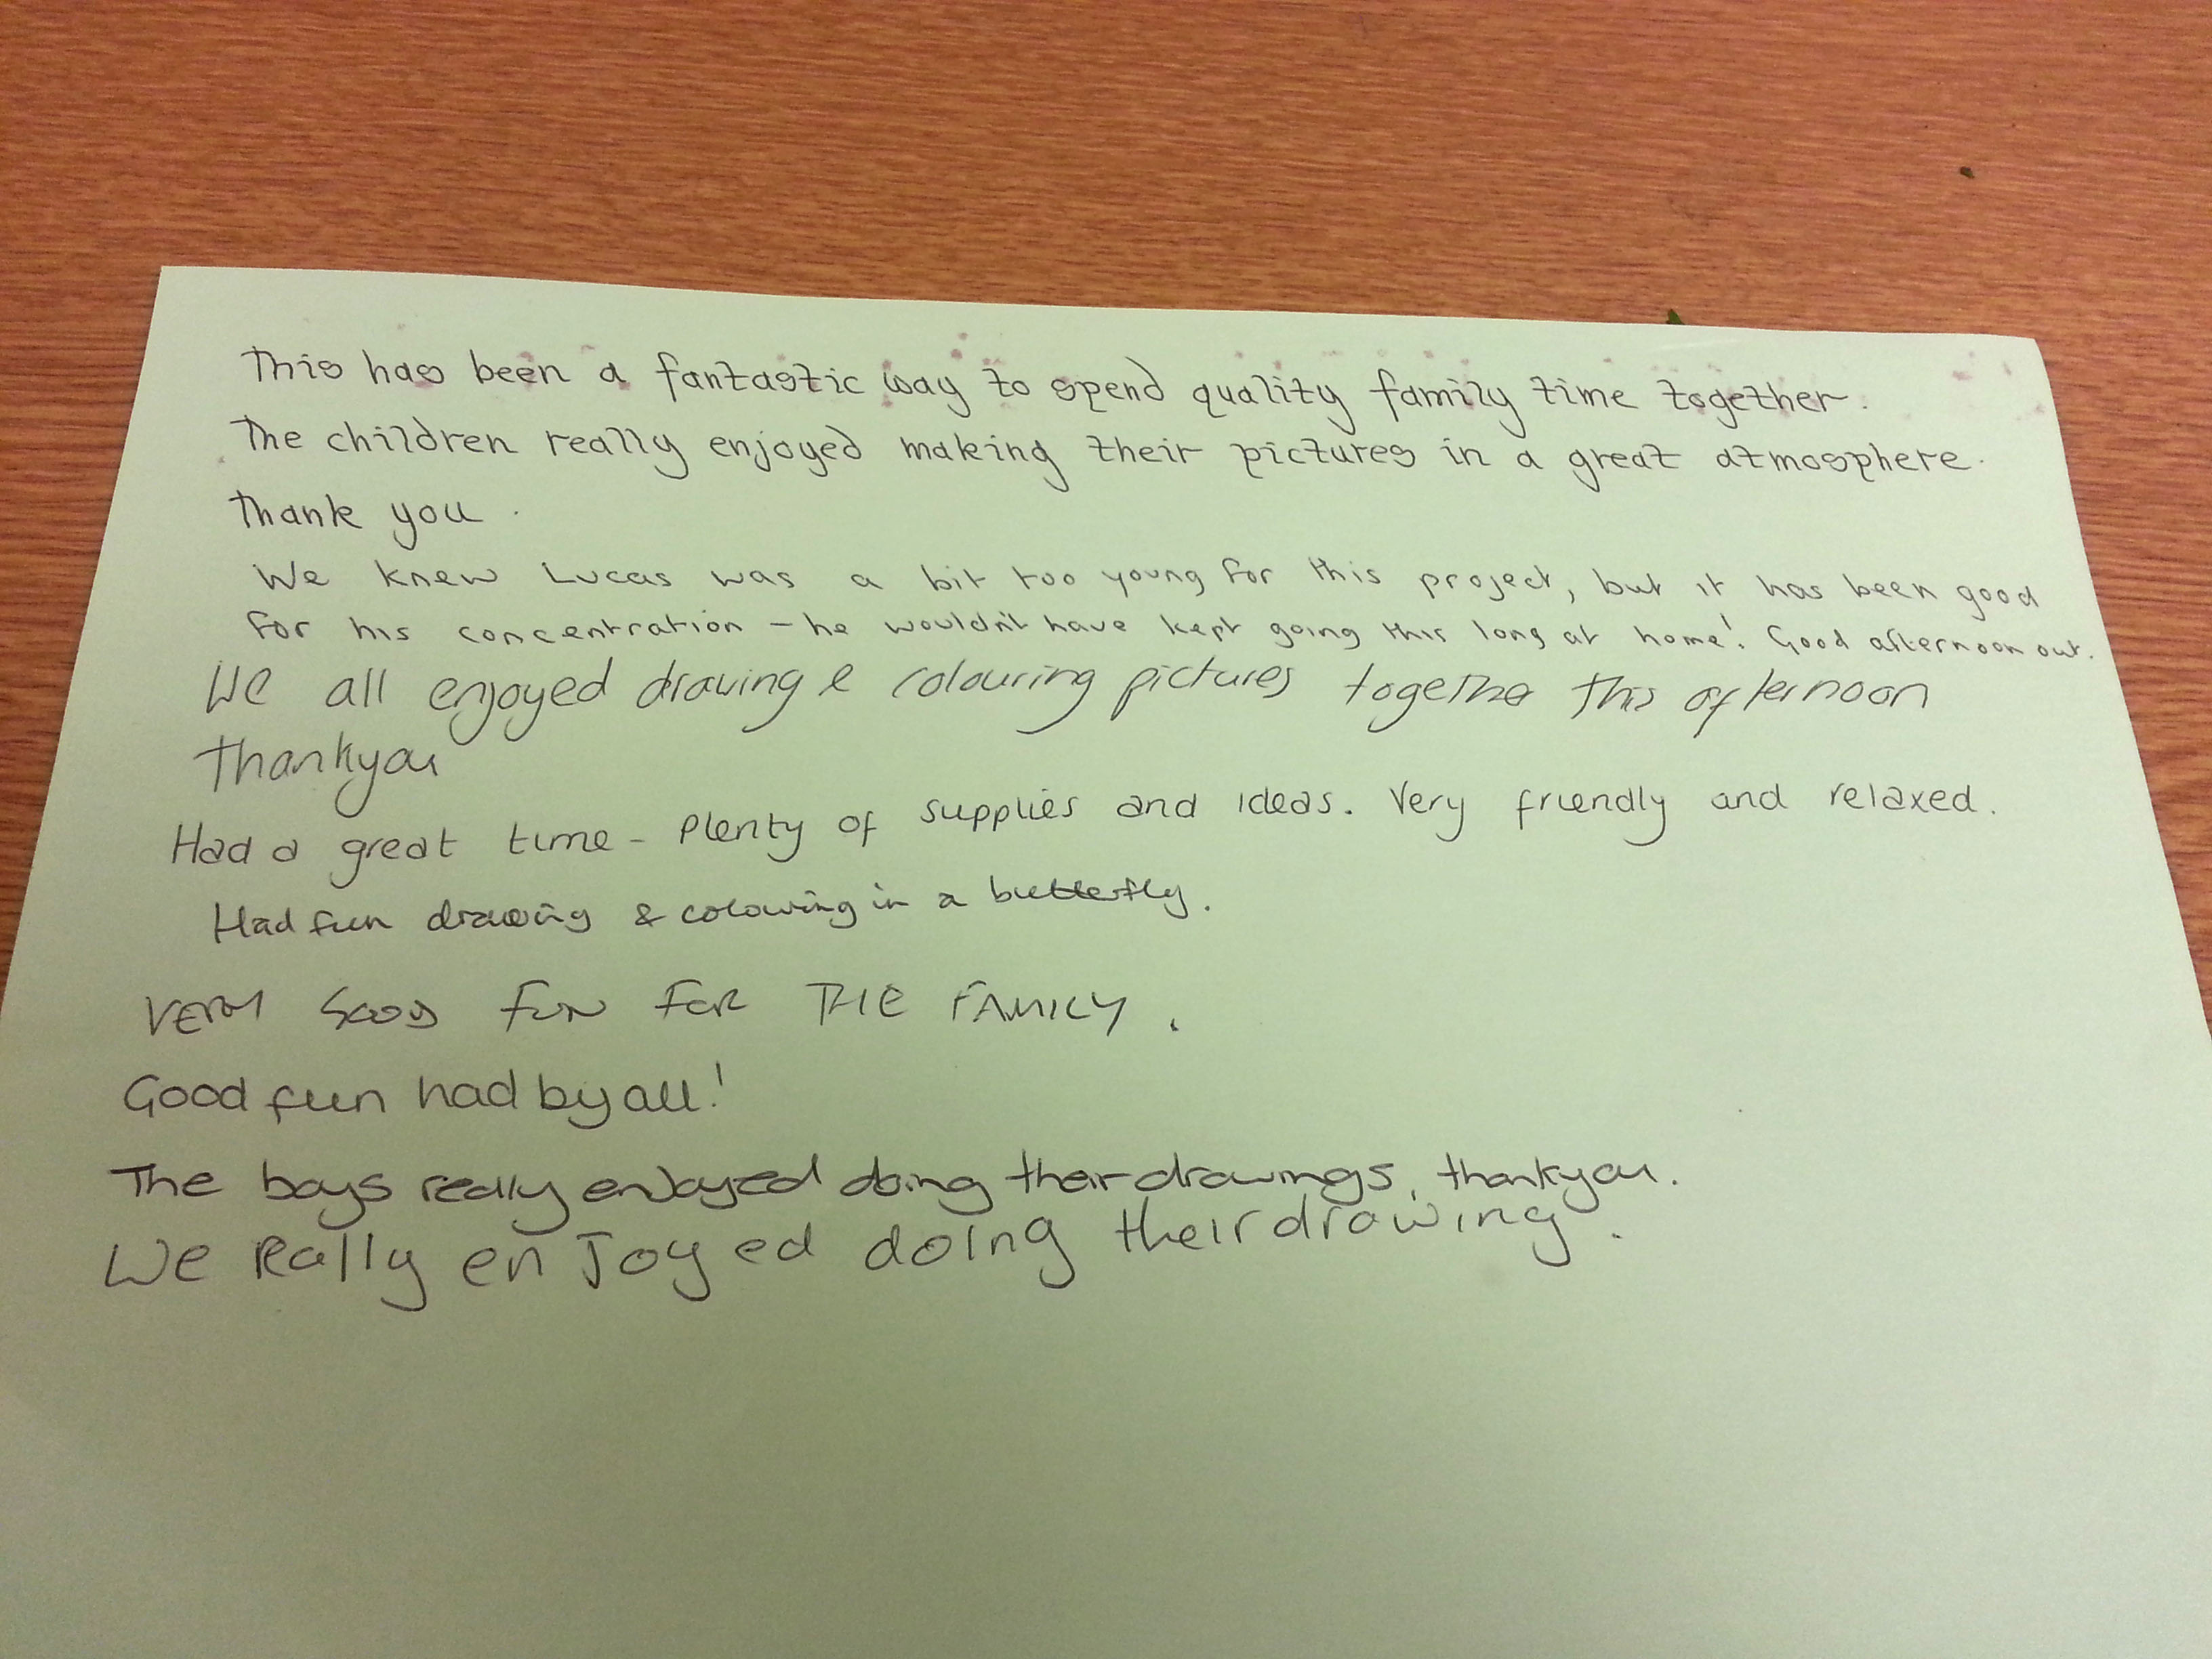 This has been a fantastic way to spend quality family time together.
The children really enjoyed making their pictures in a great atmosphere.
Thank you.
We knew Lucas was a bit too young for this project, but it has been good
for his concentration - he wouldn't have kept going this long at home! Good afternoon out.
We all enjoyed drawing & colouring pictures together this afternoon
Thankyou
Had a great time - Plenty of supplies and ideas. Very friendly and relaxed.
Had fun drawing & colouring in a butterfly.
VERY GOOD FUN FOR THE FAMILY.
Good fun had by all!
The boys really enjoyed doing their drawings, thankyou.
We Really enJoyed doing their drawing.